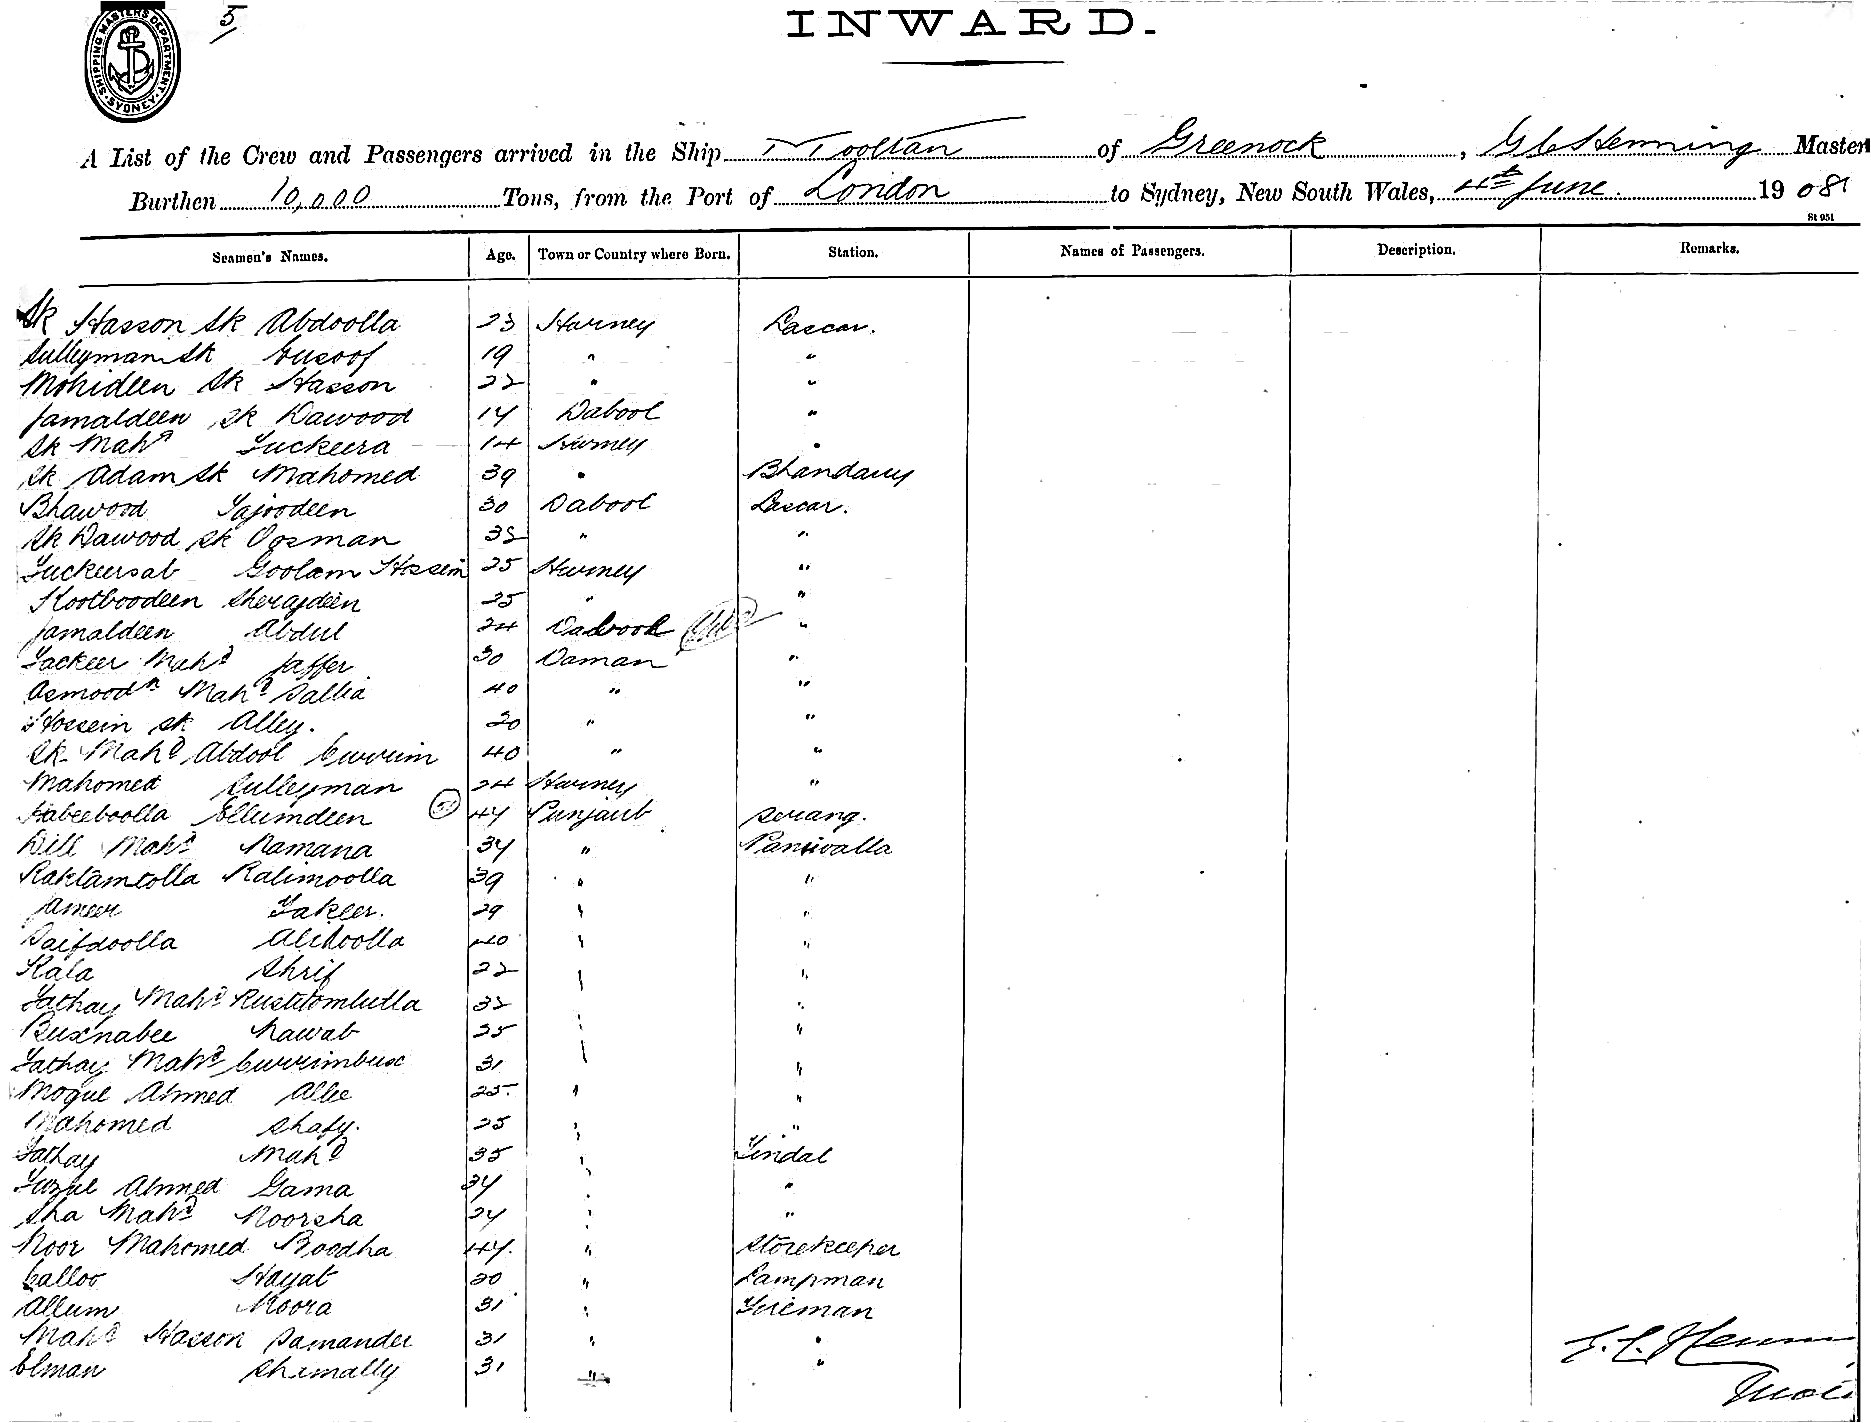 SHIPPING MASTERS DEPARTMENT. SYDNEY
5
INWARD.
A List of the Crew and Passengers arrived in the Ship Mooltan of Greenock, G C Henning Master
Burthen 10,000 Tons, from the Port of London to Sydney, New South Wales, 4th June. 1908
St 951
Seamen's Names. Age. Town or Country where Born. Station. Names of Passengers. Description. Remarks.
Sk Hasson Sk Abdoolla 23 Hurney Lascar.
Sulleyman Sk Eusoof 19 " "
Mohideen Sk Hasson 22 " "
Jamaldeen Sk Dawood 17 Dabool "
Sk Mahd Fuckeera 14 Hurney "
Sk Adam Sk Mahomed 39 " Bhandary
Bhawood Tajoodeen 30 Dabool Lascar.
Sk Dawood Sk Oosman 32 " "
Fuckeersab Goolam Hossein 25 Hurney "
Kootboodeen Sherajdeen 25 " "
Jamaldeen Abdul 24 Dabool "
Fackeer Mahd Jaffer 30 Daman "
Asmoodn Mahd Sallia 40 " "
Hossein Sk Alley. 20 " "
Sk Mahd Abdool Currim 40 " "
Mahomed Sulleyman 24 Hurney "
Habeeboolla Ellumdeen 47 Punjaub Serang.
Dill Mahd Ramana 37 " Paniwalla
Raktamtolla Kalimoolla 39 " "
Jameer Fakeer. 29 " "
Saifdoolla Alidoolla 40 " "
Kala Shrif 22 " "
Fathay Mahd Rustitombulla 32 " "
Buxnabee Nawab 25 " "
Fathay Mahd Currimbux 31 " "
Mogul Ahmed Allee 25. " "
Mahomed Shafy. 25 " "
Fathay Mahd 35 " Tindal
Fuzul Ahmed Gama 37 " "
Sha Mahd Noorsha 27 " "
Noor Mahomed Boodha 47. " Storekeeper
Calloo Hayat 20 " Lampman
Allum Noora 31 " Fireman
Mahd Hasson Samander 31 " "
Elman Shemally 31 " "